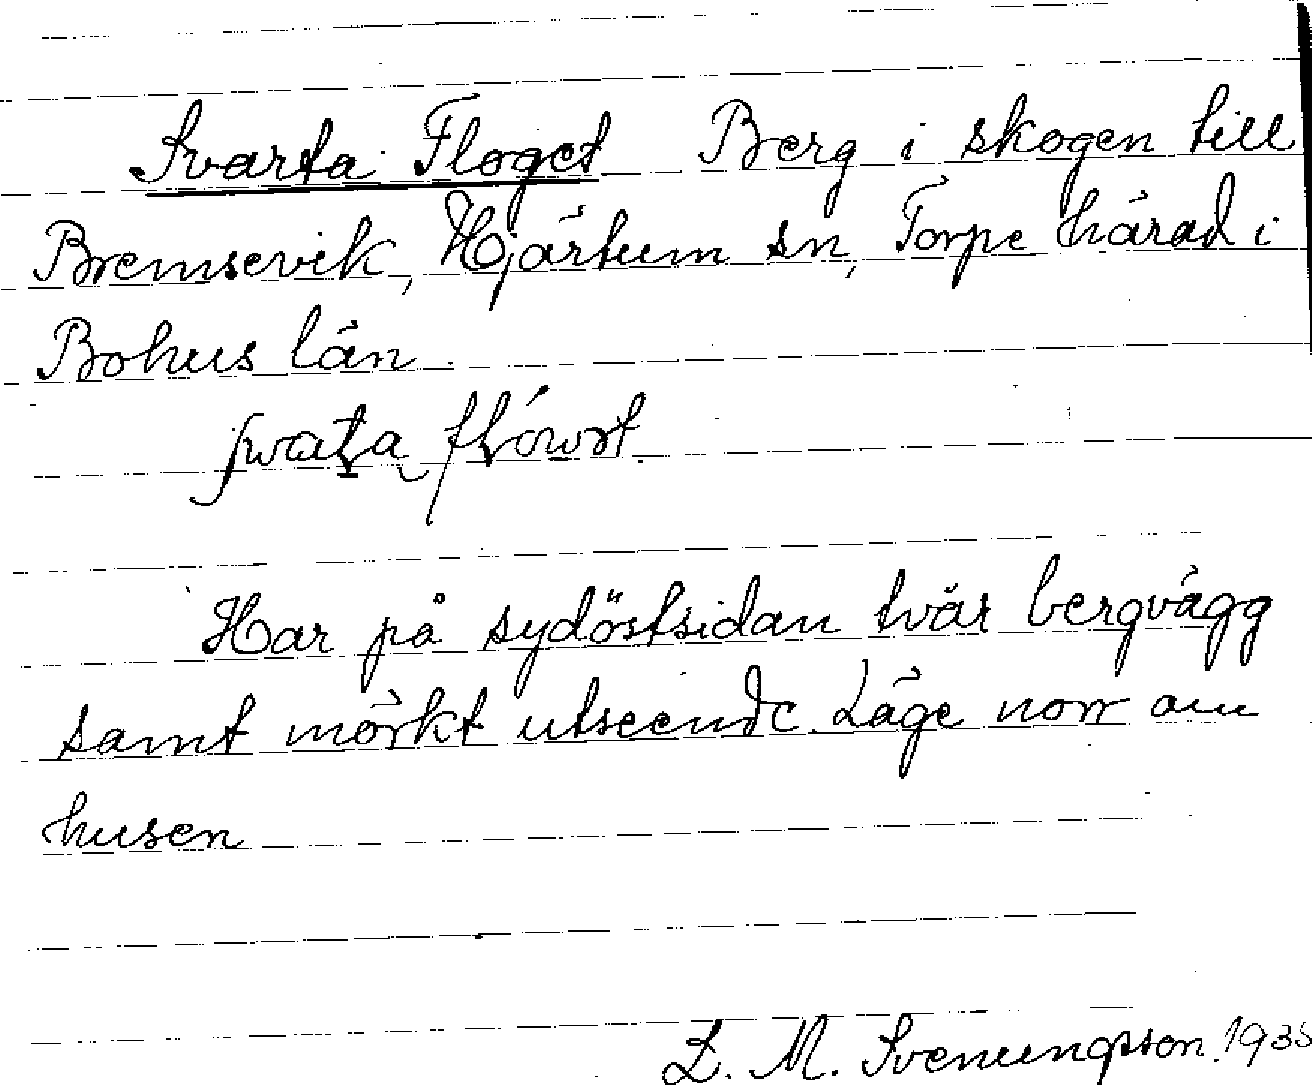 Svarta Floget Berg i skogen till
Bremsevik, Hjärtum sn, Torpe härad i
Bohus län
Har på sydöstsidan tvär bergvägg
samt mörkt utseende. Läge norr om
husen
L. M. Svenungsson.